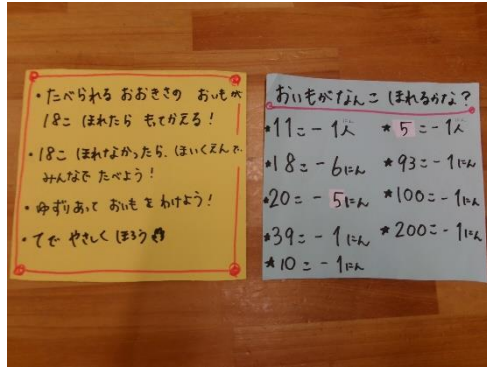 ・たべられる おおきさの おいもが
18こ ほれたら もてかえる！
・18こ ほれなかったら、ほいくえんで
みんなで たべよう！
・ゆずりあって おいもを わけよう！
・てで やさしく ほろう
おいもがなんこ ほれるかな？
★11こ－1人
にん
★18こ－6にん
★20こ－5にん
★39こ－1にん
★10こ－1にん
★5こ－1人
にん
★93こ－1にん
★100こ－1にん
★200こ－1にん